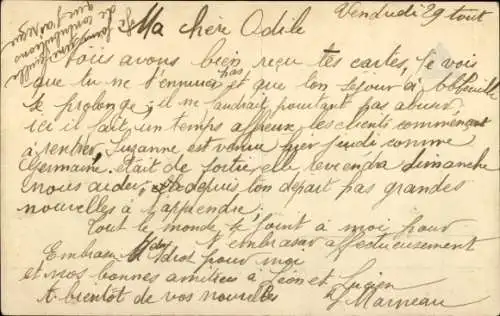 Vendredi 29 Aout
Ma chère Odile
Nous avons bien reçu tes cartes, je vois
que tu ne t'ennuies pas et que ton séjour à
se prolonge, il ne faudrait pourtant pas abuser,
ici il fait un temps affreux les clients commencent
à rentrer, Suzanne est venue hier jeudi comme
Germaine était de sortie elle reviendra dimanche
nous aider, depuis ton départ pas grandes
nouvelles à t'apprendre.
Tout le monde se joint à moi pour
t'embrasser affectueusement
Embrasse pour moi
et nos bonnes amitiés à Léon et Lucien
A bientôt de vos nouvelles
Marneau